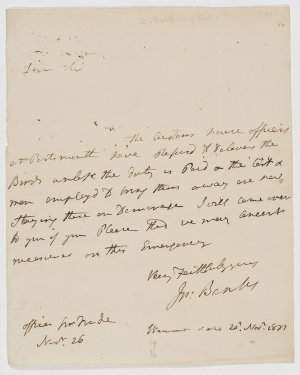 Dear Sir
the Custom house officers
at Portsmouth have refusd to deliver the
Birds unless the Duty is Paid on the Cost &
men employd to bring them away are now
staying there on Demurage I will come over
to you if you Please that we may concert
measures on this Emergency
Very Faithfully yrs
Jos: Banks
office for Trade
Novr. 26
Novr.